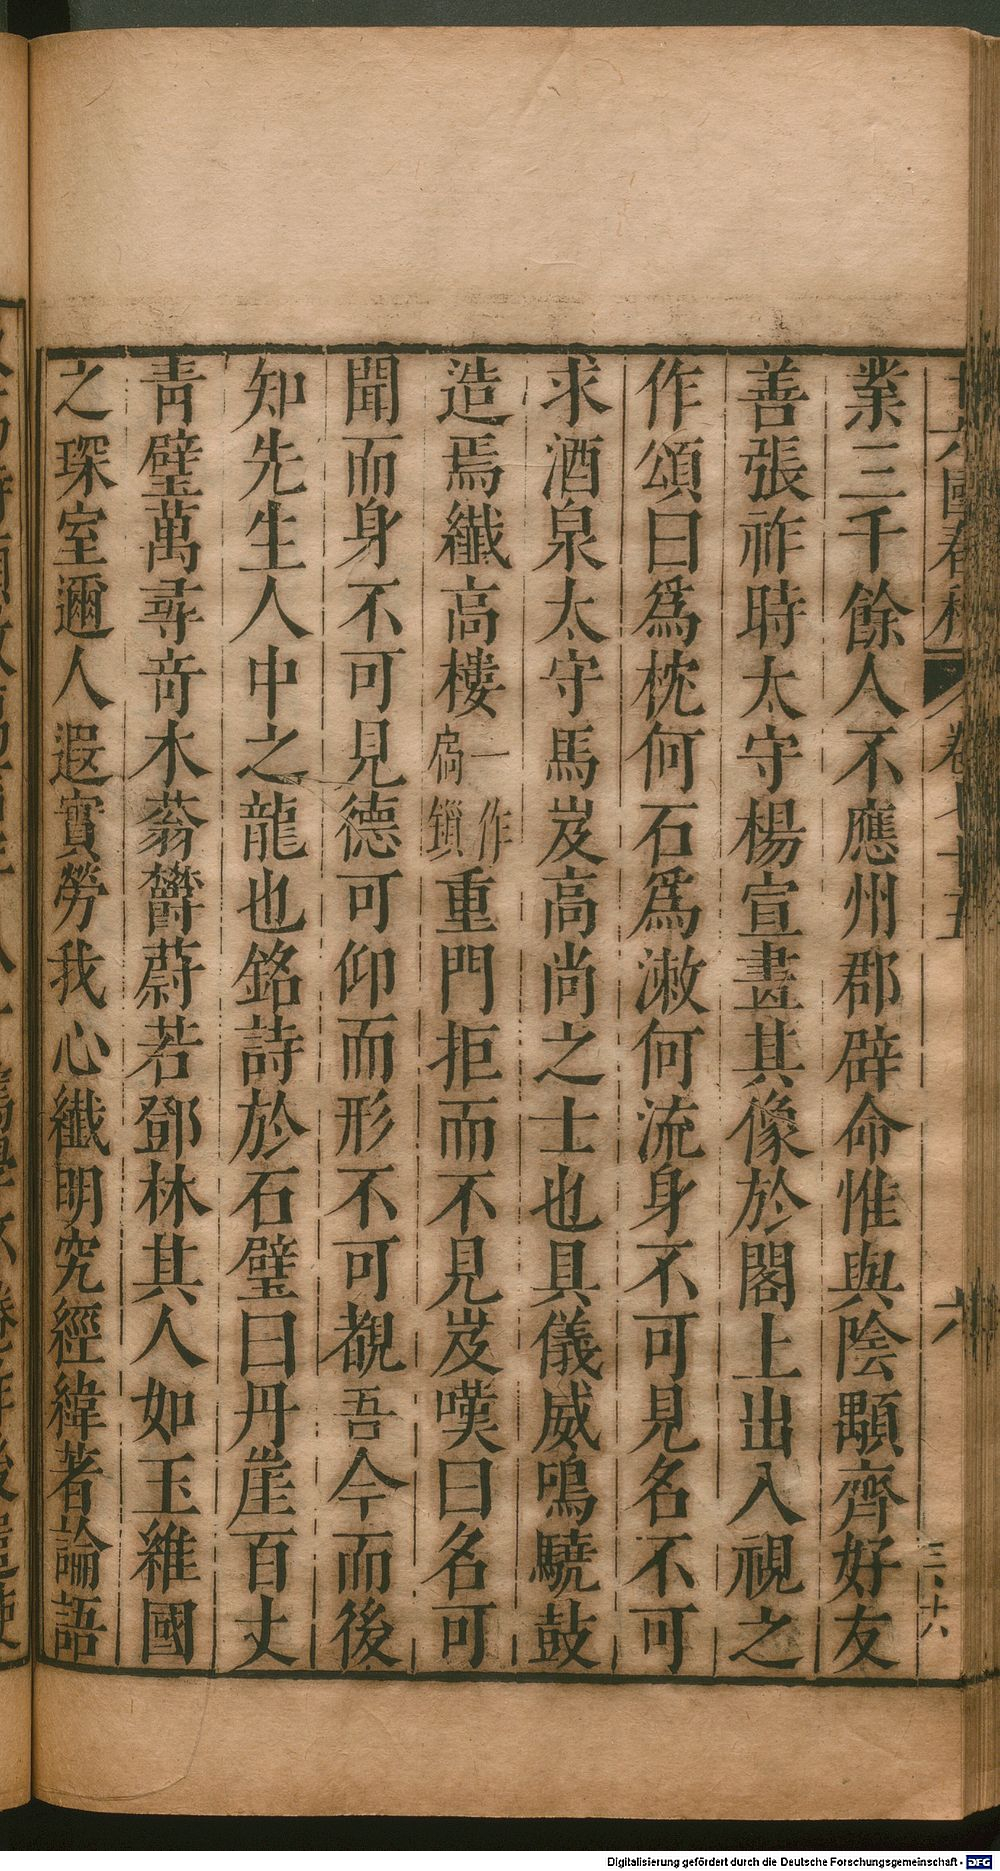 業三千餘人不應州郡辟命惟與陰顒齊好友
善張祚時太守楊宣畫其像於閣上出入視之
作頌曰爲枕何石爲漱何流身不可見名不可
求酒泉太守馬岌高尚之士也具儀威鳴驍鼓
造焉纖高樓一作扃鎖重門拒而不見岌嘆曰名可
聞而身不可見德可仰而形不可覩吾今而後
知先生人中之龍也銘詩於石壁曰丹崖百丈
靑壁萬尋奇木蓊欎蔚若鄧林其人如玉維國
之琛室邇人遐實勞我心纖明究經緯著論語
十六國春秋
卷七十五
六
三·十八
Digitalisierung gefördert durch die Deutsche Forschungsgemeinschaft - DFG